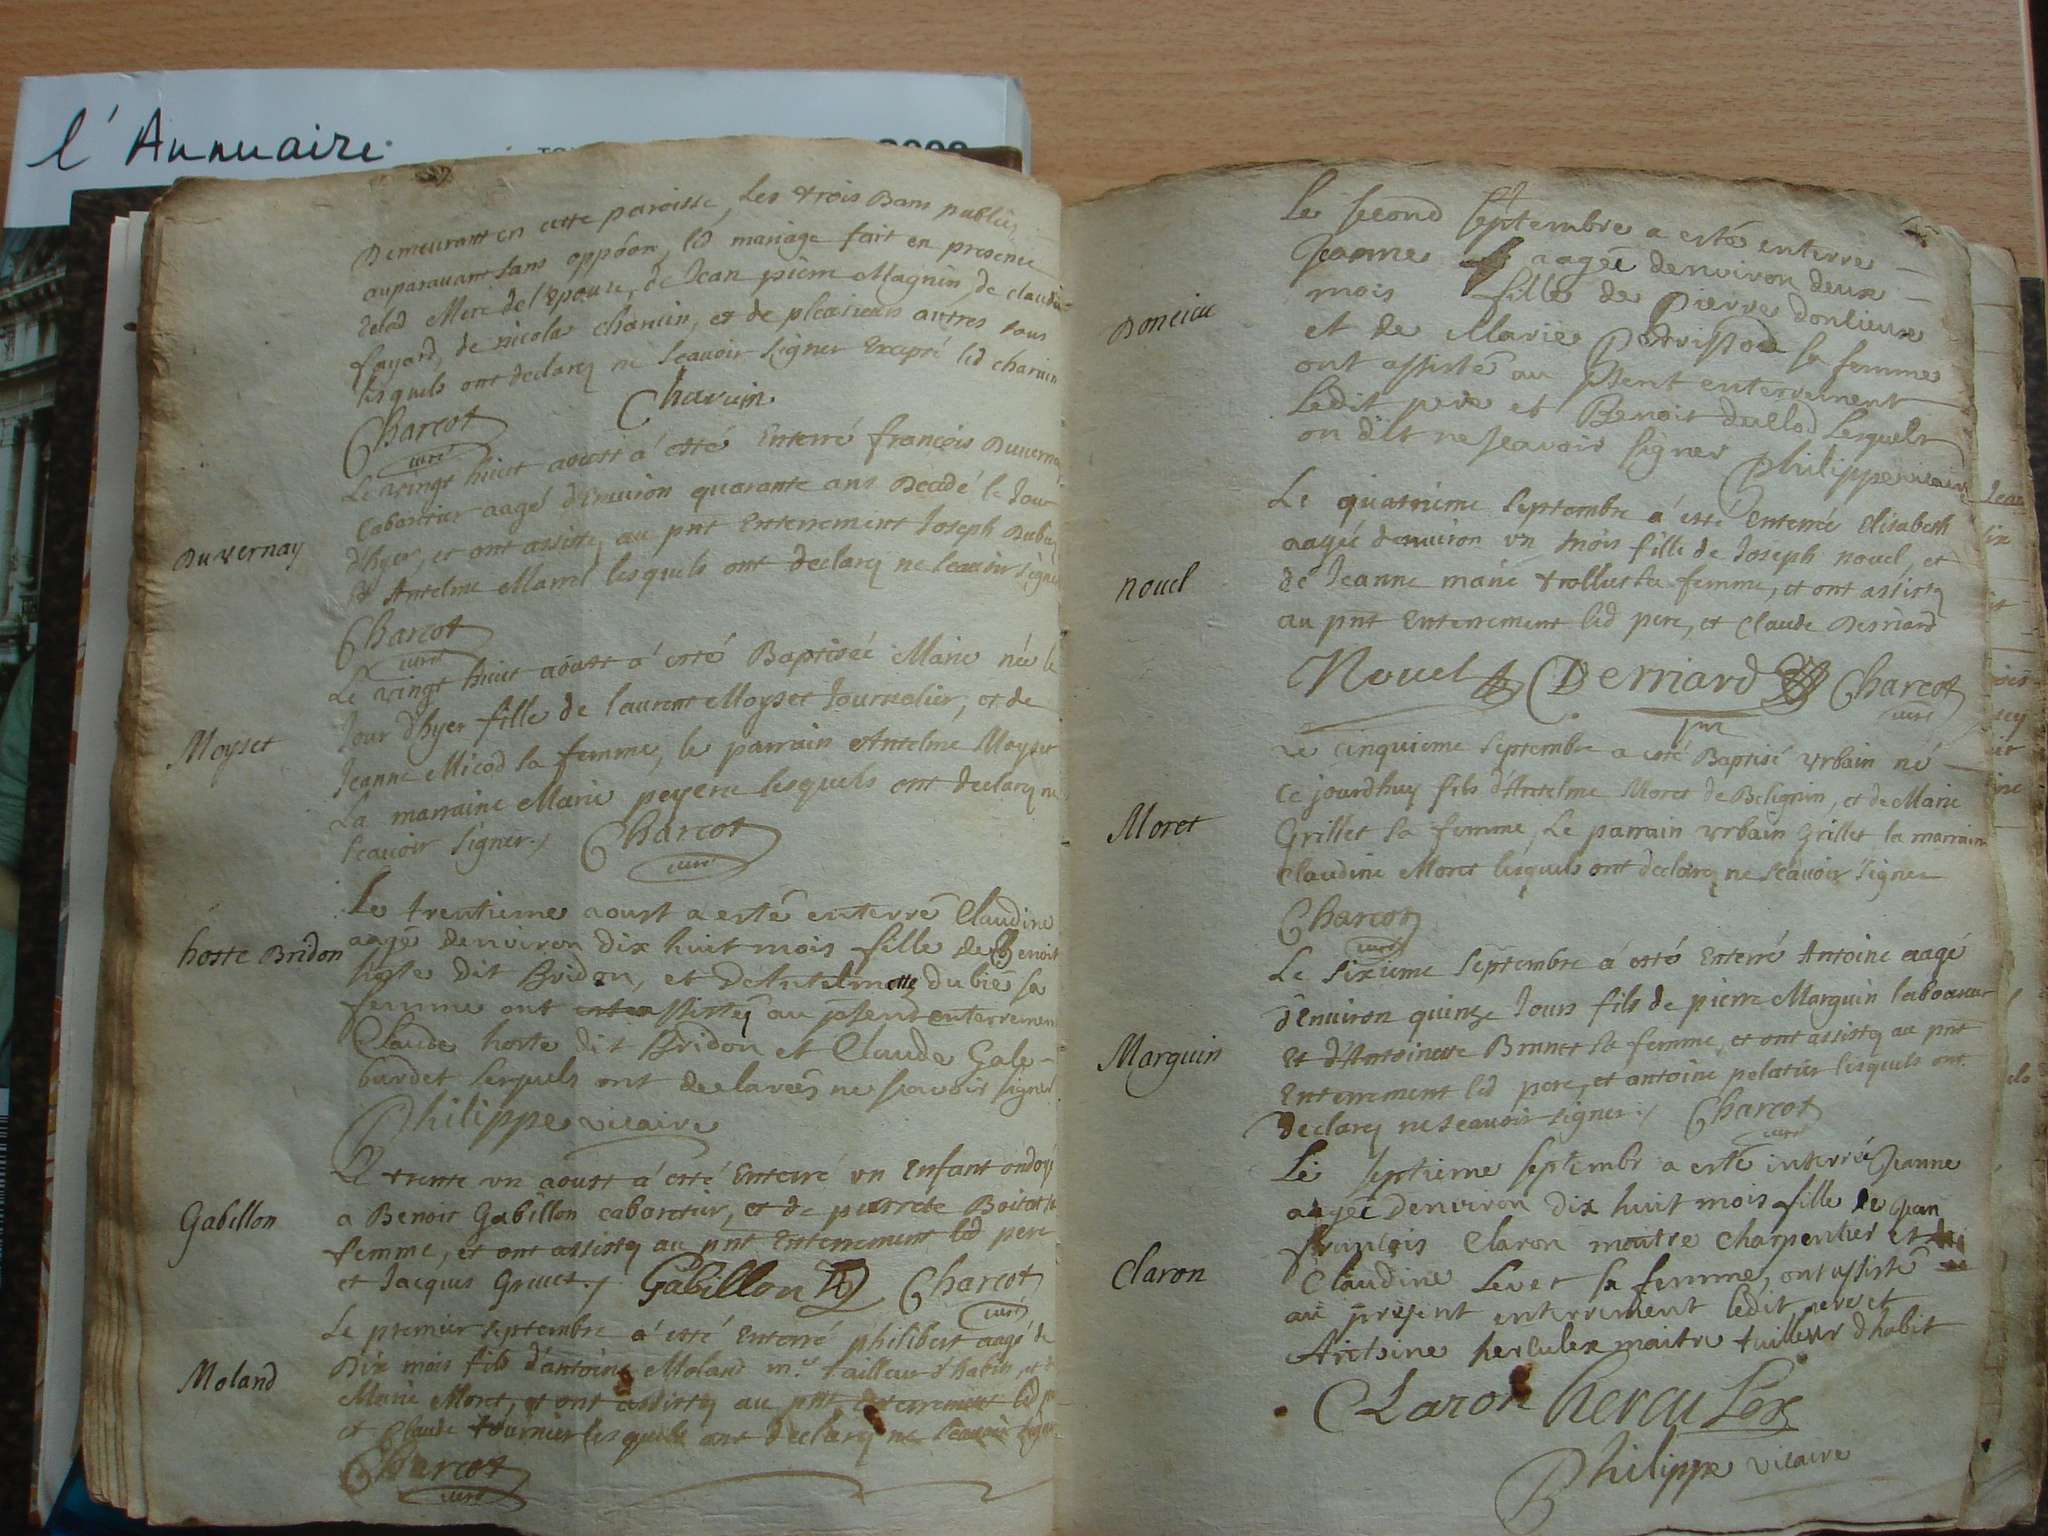 l'Annuaire
Demeurant en cette paroisse, Les trois Bans publiez
auparavant sans oppõon, led mariage fait en presence
delad Mere de l'Epouse, de Jean pierre Magnin, de claude
fayard, de nicolas charuin, et de plusieurs autres tous
lesquels ont declarez ne scauoir signer Excepté led charuin
Charuin
Charcot
curé
Duvernay
Le vingt huict aoust a' esté Enterré françois Duuernay
Cabaretier aagé d'Enuiron quarante ans Decedé le Jour
d'hyer, et ont assistez au pnt Enterrement Joseph
et Antelme Mamet lesquels ont declarez ne scauoir signer
Charcot
curé
Moyset
Le vingt huict aoust a' esté Baptisée Marie née le
Jour d'hyer fille de laurent Moyset Journalier, et de
Jeanne Micod sa femme, le parrain Antelme Moyset
La marraine Marie peyere lesquels ont declarez ne
scauoir signer./ Charcot
curé
hoste Bridon
Le trentieme aoust a esté enterré Claudine
aagé denviron dix huit mois fille de Benoit
hoste dit Bridon, et De Antelmette dubie sa
femme ont assistéz au psend enterrement
Claude hoste dit Bridon et Claude Gale-
bardet lesquels ont declareés ne scavoir signer
Philippe vicaire
Gabillon
Le trente vn aoust a' esté Enterré vn Enfant ondoyé
a Benoit Gabillon cabaretier, et de pierrete Boitet sa
femme, et ont assistez au pnt Enterrement led pere
et Jacques Gruet./ Gabillon Charcot
curé
Moland
Le premier septembre a' esté Enterré philibert aagé de
Dix mois fils d'antoine Moland m.e tailleur d'habits, et de
Marie Moret, et ont assistez au pnt enterrement led pe-
et Claude tournier lesquels ont declarez ne scauoir signer
Charcot
curé
Donlieu
Le second Septembre a esté enterre
Jeanne aageé denviron deux
mois fille de Pierre donlieux
et de Marie Perrissod sa femme
ont assisté au psent enterrement
Ledit pere et Benoit dullod Lesquels
on dit ne scavoir signer
Philippe vicaire
nouel
Le quatrieme septembre a' esté Enterrée Elisabeth
aagée denuiron vn mois fille de Joseph nouel, et
de Jeanne marie trollut sa femme, et ont assistez
au pnt Enterrement led pere, et Claude Derriard
Nouel Derriard Charcot
curé
Moret
Le cinquieme septembre a esté Baptisé vrbain né
ce jourdhuy fils d'Antelme Moret de Belignin, et de Marie
Grillet sa femme, Le parrain vrbain Grillet, la marraine
Claudine Moret lesquels ont declarez ne scauoir signer
Charcot
curé
Marguin
Le sixieme septembre a' esté Enterré Antoine aagé
d'Enuiron quinze Jours fils de pierre Marguin laboureur
et d'Antoinette Brunet sa femme, et ont assistez au pnt
Enterrement led pere, et antoine pelatier lesquels ont
declarez ne scauoir signer./ Charcot
curé
Claron
Le septieme septembr a esté interreé Jeanne
aageé Denviron dix huit mois fille de Jean
françois Claron maitre charpentier et de
Claudine Levet sa femme, ont assisté
au present enterrement ledit pere et
Antoine herculex maitre tailleur d'habit
Claron herculex
Philippe vicaire